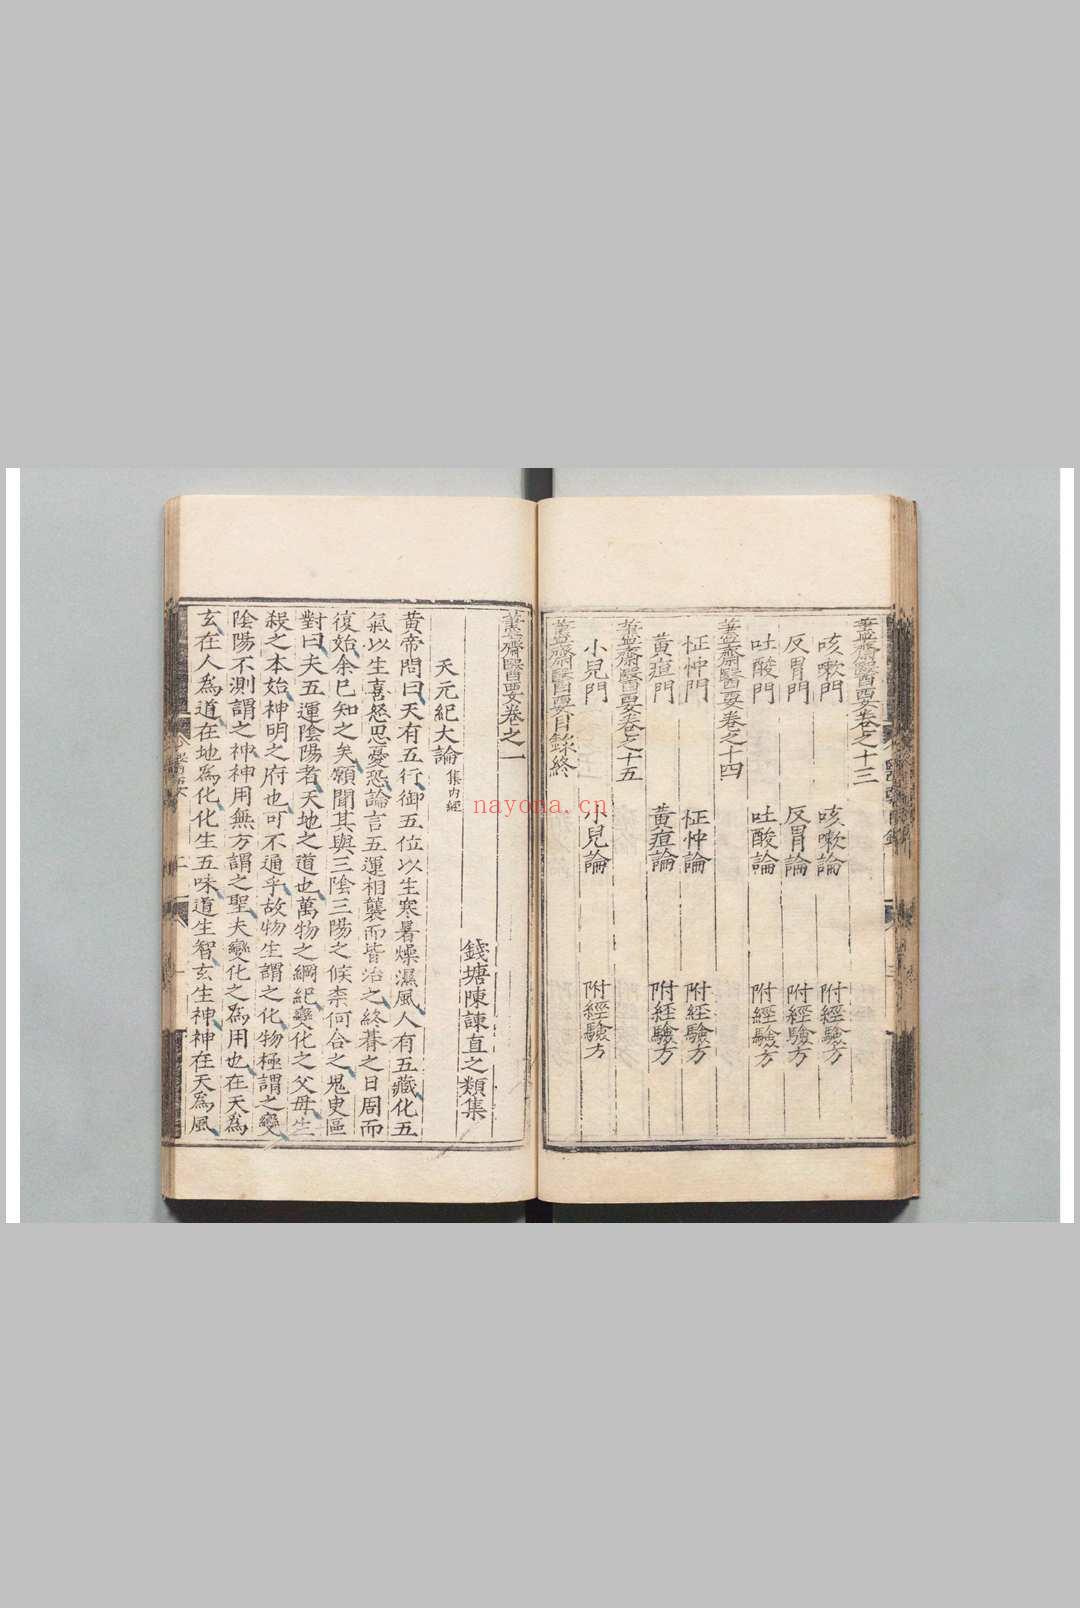 藎齋醫要卷之十三
咳嗽門 咳嗽論 附經驗方
反胃門 反胃論 附經驗方
吐酸門 吐酸論 附經驗方
藎齋醫要卷之十四
怔忡門 怔忡論 附經驗方
黃疸門 黃疸論 附經驗方
藎齋醫要卷之十五
小兒門 小兒論 附經驗方
藎齋醫要目錄終
藎齋醫要卷之一
錢塘陳諫直之類集
天元紀大論 集內經
黃帝問曰天有五行御五位以生寒暑燥濕風人有五藏化五
氣以生喜怒思憂恐論言五運相襲而皆治之終朞之日周而
復始余已知之矣願聞其與三陰三陽之候柰何合之鬼臾區
對曰夫五運陰陽者天地之道也萬物之綱紀變化之父母生
殺之本始神明之府也可不通乎故物生謂之化物極謂之變
陰陽不測謂之神神用無方謂之聖夫變化之爲用也在天爲
玄在人爲道在地爲化化生五味道生智玄生神神在天爲風
nayona.cn